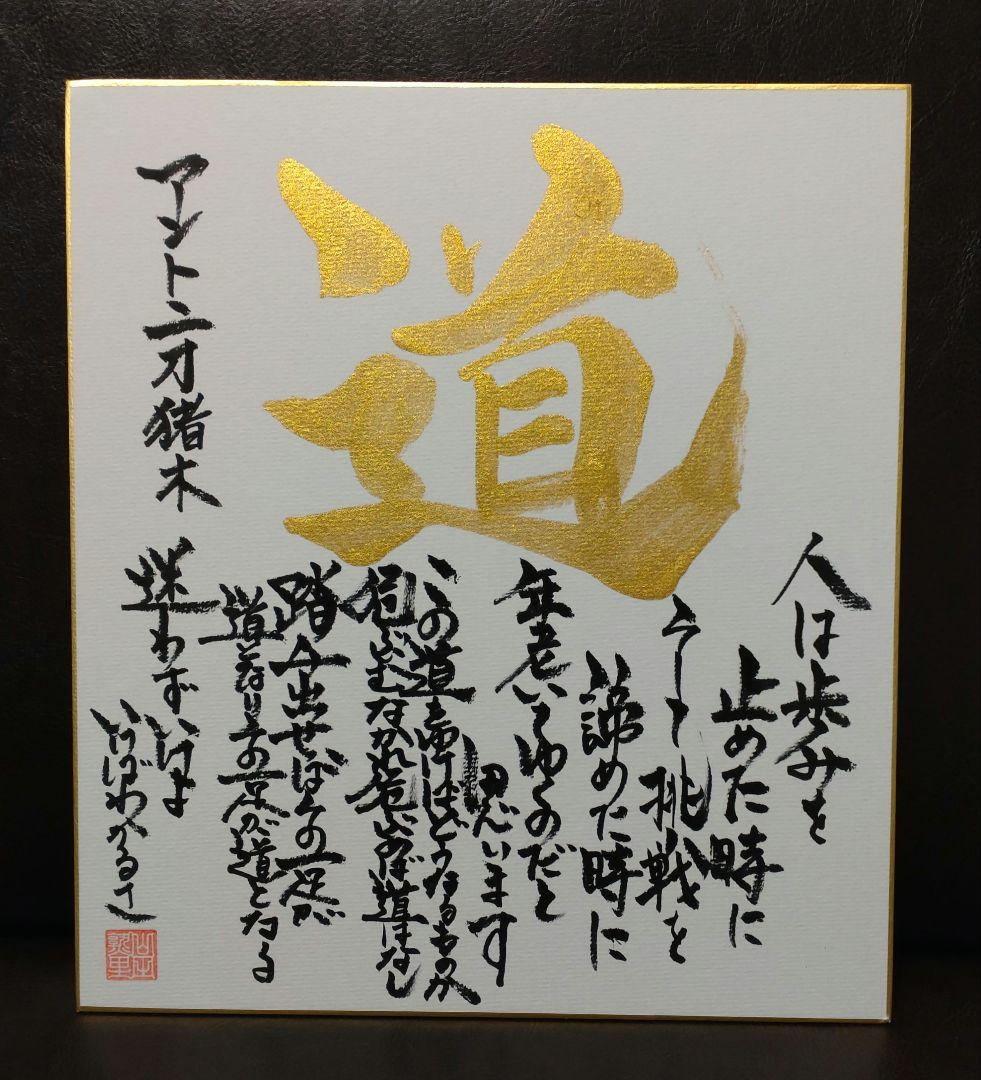 道
人は歩みを
止めた時に
そして挑戦を
諦めた時に
年老いてゆくのだと
思います
この道を行けばどうなるものか
危ぶむなかれ危ぶめば道はなし
踏み出せばその一足が
道となりその一足が道となる
迷わずいけよ
いけばわかるさ
アントニオ猪木